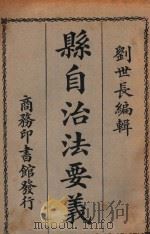 劉世長編輯
縣自治法要義
商務印書館發行